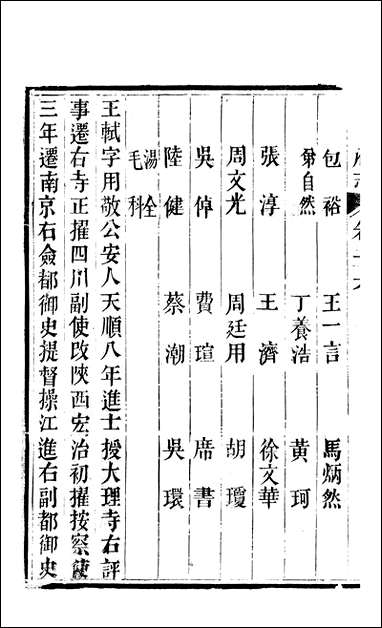 包裕 王一言 馬炳然
自然 丁養浩 黃珂
張淳 王濟 徐文華
周文光 周廷用 胡瓊
吳倬 費瑄 席書
陸健 蔡潮 吳環
湯全
毛科
王軾字用敬公安人天順八年進士授大理寺右評
事遷右寺正擢四川副使改陝西宏治初擢按察使
三年遷南京右僉都御史提督操江進右副都御史